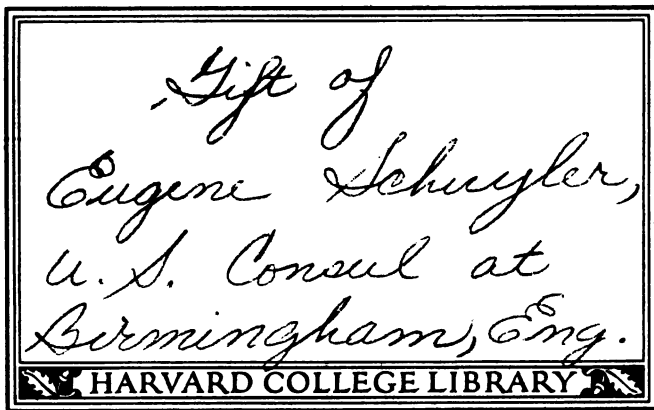 Gift of
Eugene Schuyler,
U. S. Consul at
Birmingham, Eng.
HARVARD COLLEGE LIBRARY